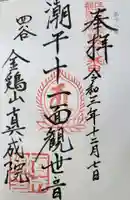 奉拝
令和三年十二月十日
潮干十一面観世音
四谷
金鶏山真成院